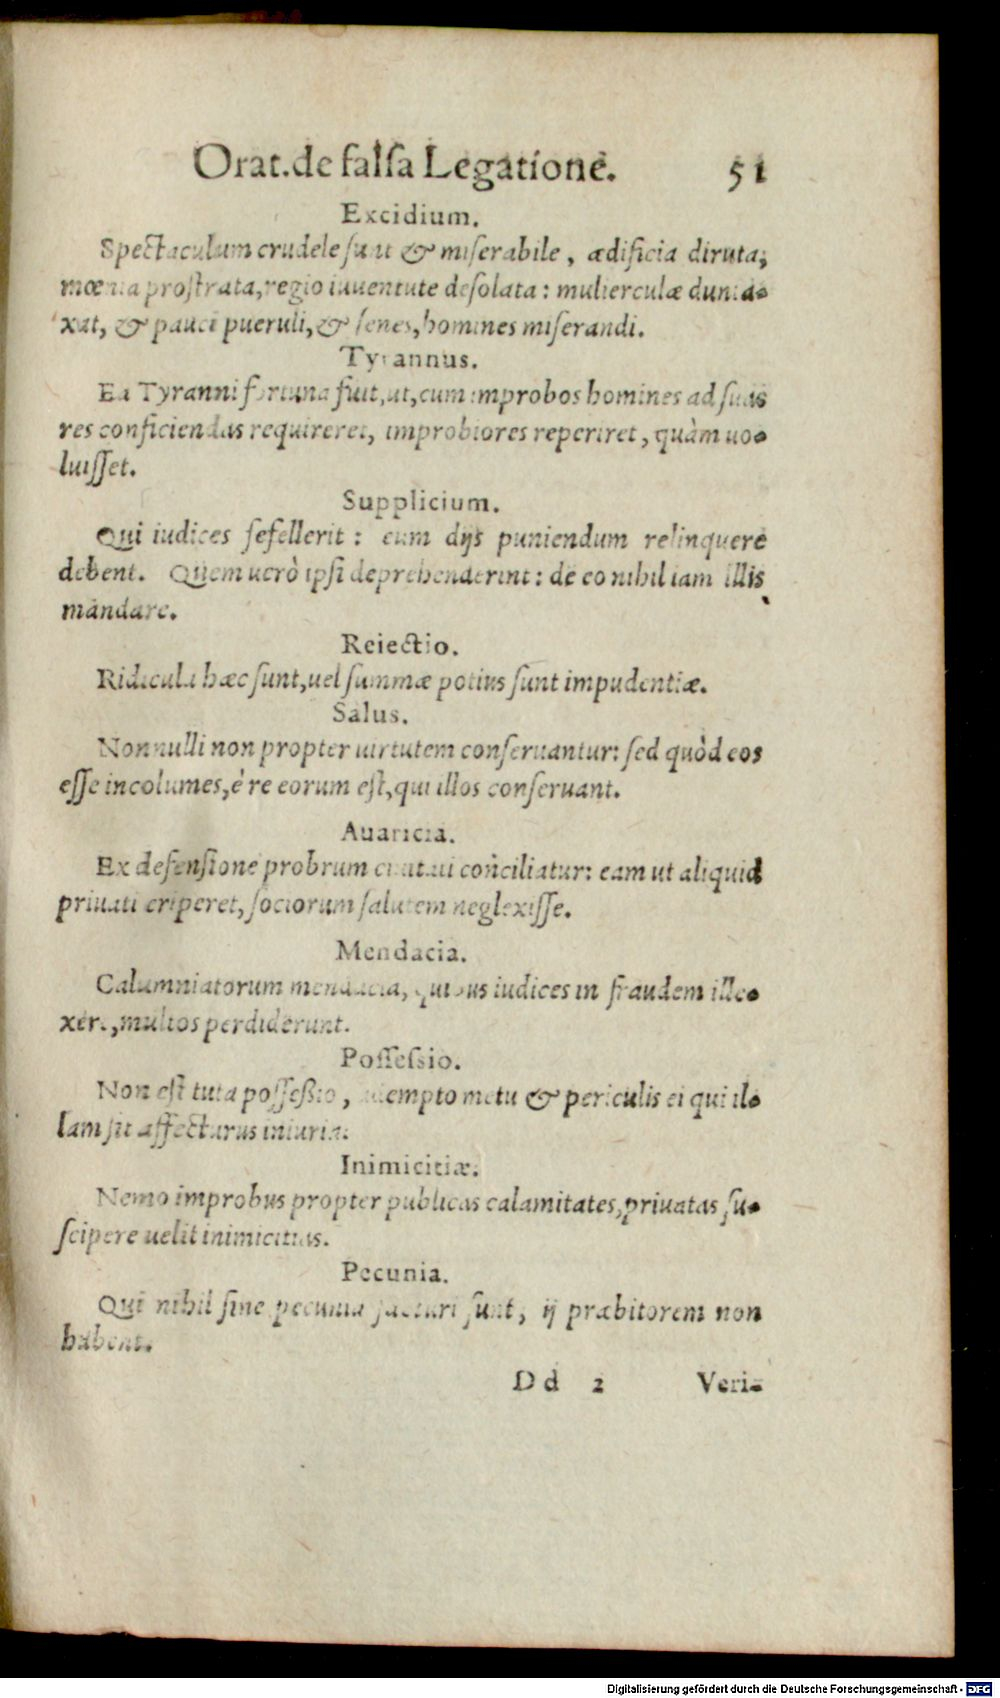 Orat.de falsa Legatione. 51
Excidium.
Spectaculum crudele sunt & miserabile, ædificia diruta,
mœnia prostrata, regio iuuentute desolata: mulierculæ dunta-
xat, & pauci pueruli, & senes, homines miserandi.
Tyrannus.
Ea Tyranni fortuna fuit, ut, cum improbos homines ad suas
res conficiendas requireret, improbiores reperiret, quàm uo-
luisset.
Supplicium.
Qui iudices fefellerit: eum dijs puniendum relinquere
debent. Quem uerò ipsi deprehenderint: de eo nihil iam illis
mandare.
Reiectio.
Ridicula hæc sunt, uel summæ potius sunt impudentiæ.
Salus.
Nonnulli non propter uirtutem conseruantur: sed quòd eos
esse incolumes, è re eorum est, qui illos conseruant.
Auaricia.
Ex defensione probrum ciuitati conciliatur: eam ut aliquid
priuati eriperet, sociorum salutem neglexisse.
Mendacia.
Calumniatorum mendacia, quibus iudices in fraudem ille-
xere, multos perdiderunt.
Possessio.
Non est tuta possessio, adempto metu & periculis ei qui il-
lam sit affecturus iniuria.
Inimicitiæ.
Nemo improbus propter publicas calamitates, priuatas su-
scipere uelit inimicitias.
Pecunia.
Qui nihil sine pecunia facturi sunt, ij præbitorem non
habent.
Dd 2 Veri-
Digitalisierung gefördert durch die Deutsche Forschungsgemeinschaft - DFG